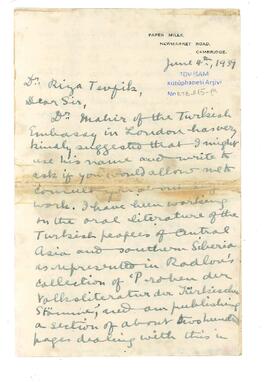 PAPER MILLS,
NEWMARKET ROAD,
CAMBRIDGE.
June 4th, 1939
TDV İSAM
Kütüphanesi Arşivi
No RTB
Dr Riza Tevfik,
Dear Sir,
Dr. Mahir of the Turkish
Embassy in London has very
kindly suggested that I might
use his name and write to
ask if you would allow me to
consult you about my
work. I have been working
on the oral literature of the
Turkish peoples of Central
Asia and southern Siberia
as represented in Radlov's
collection of Proben der
Volksliteratur der Türkischen
Stämme, and am publishing
a section of about two hundred
pages dealing with this in